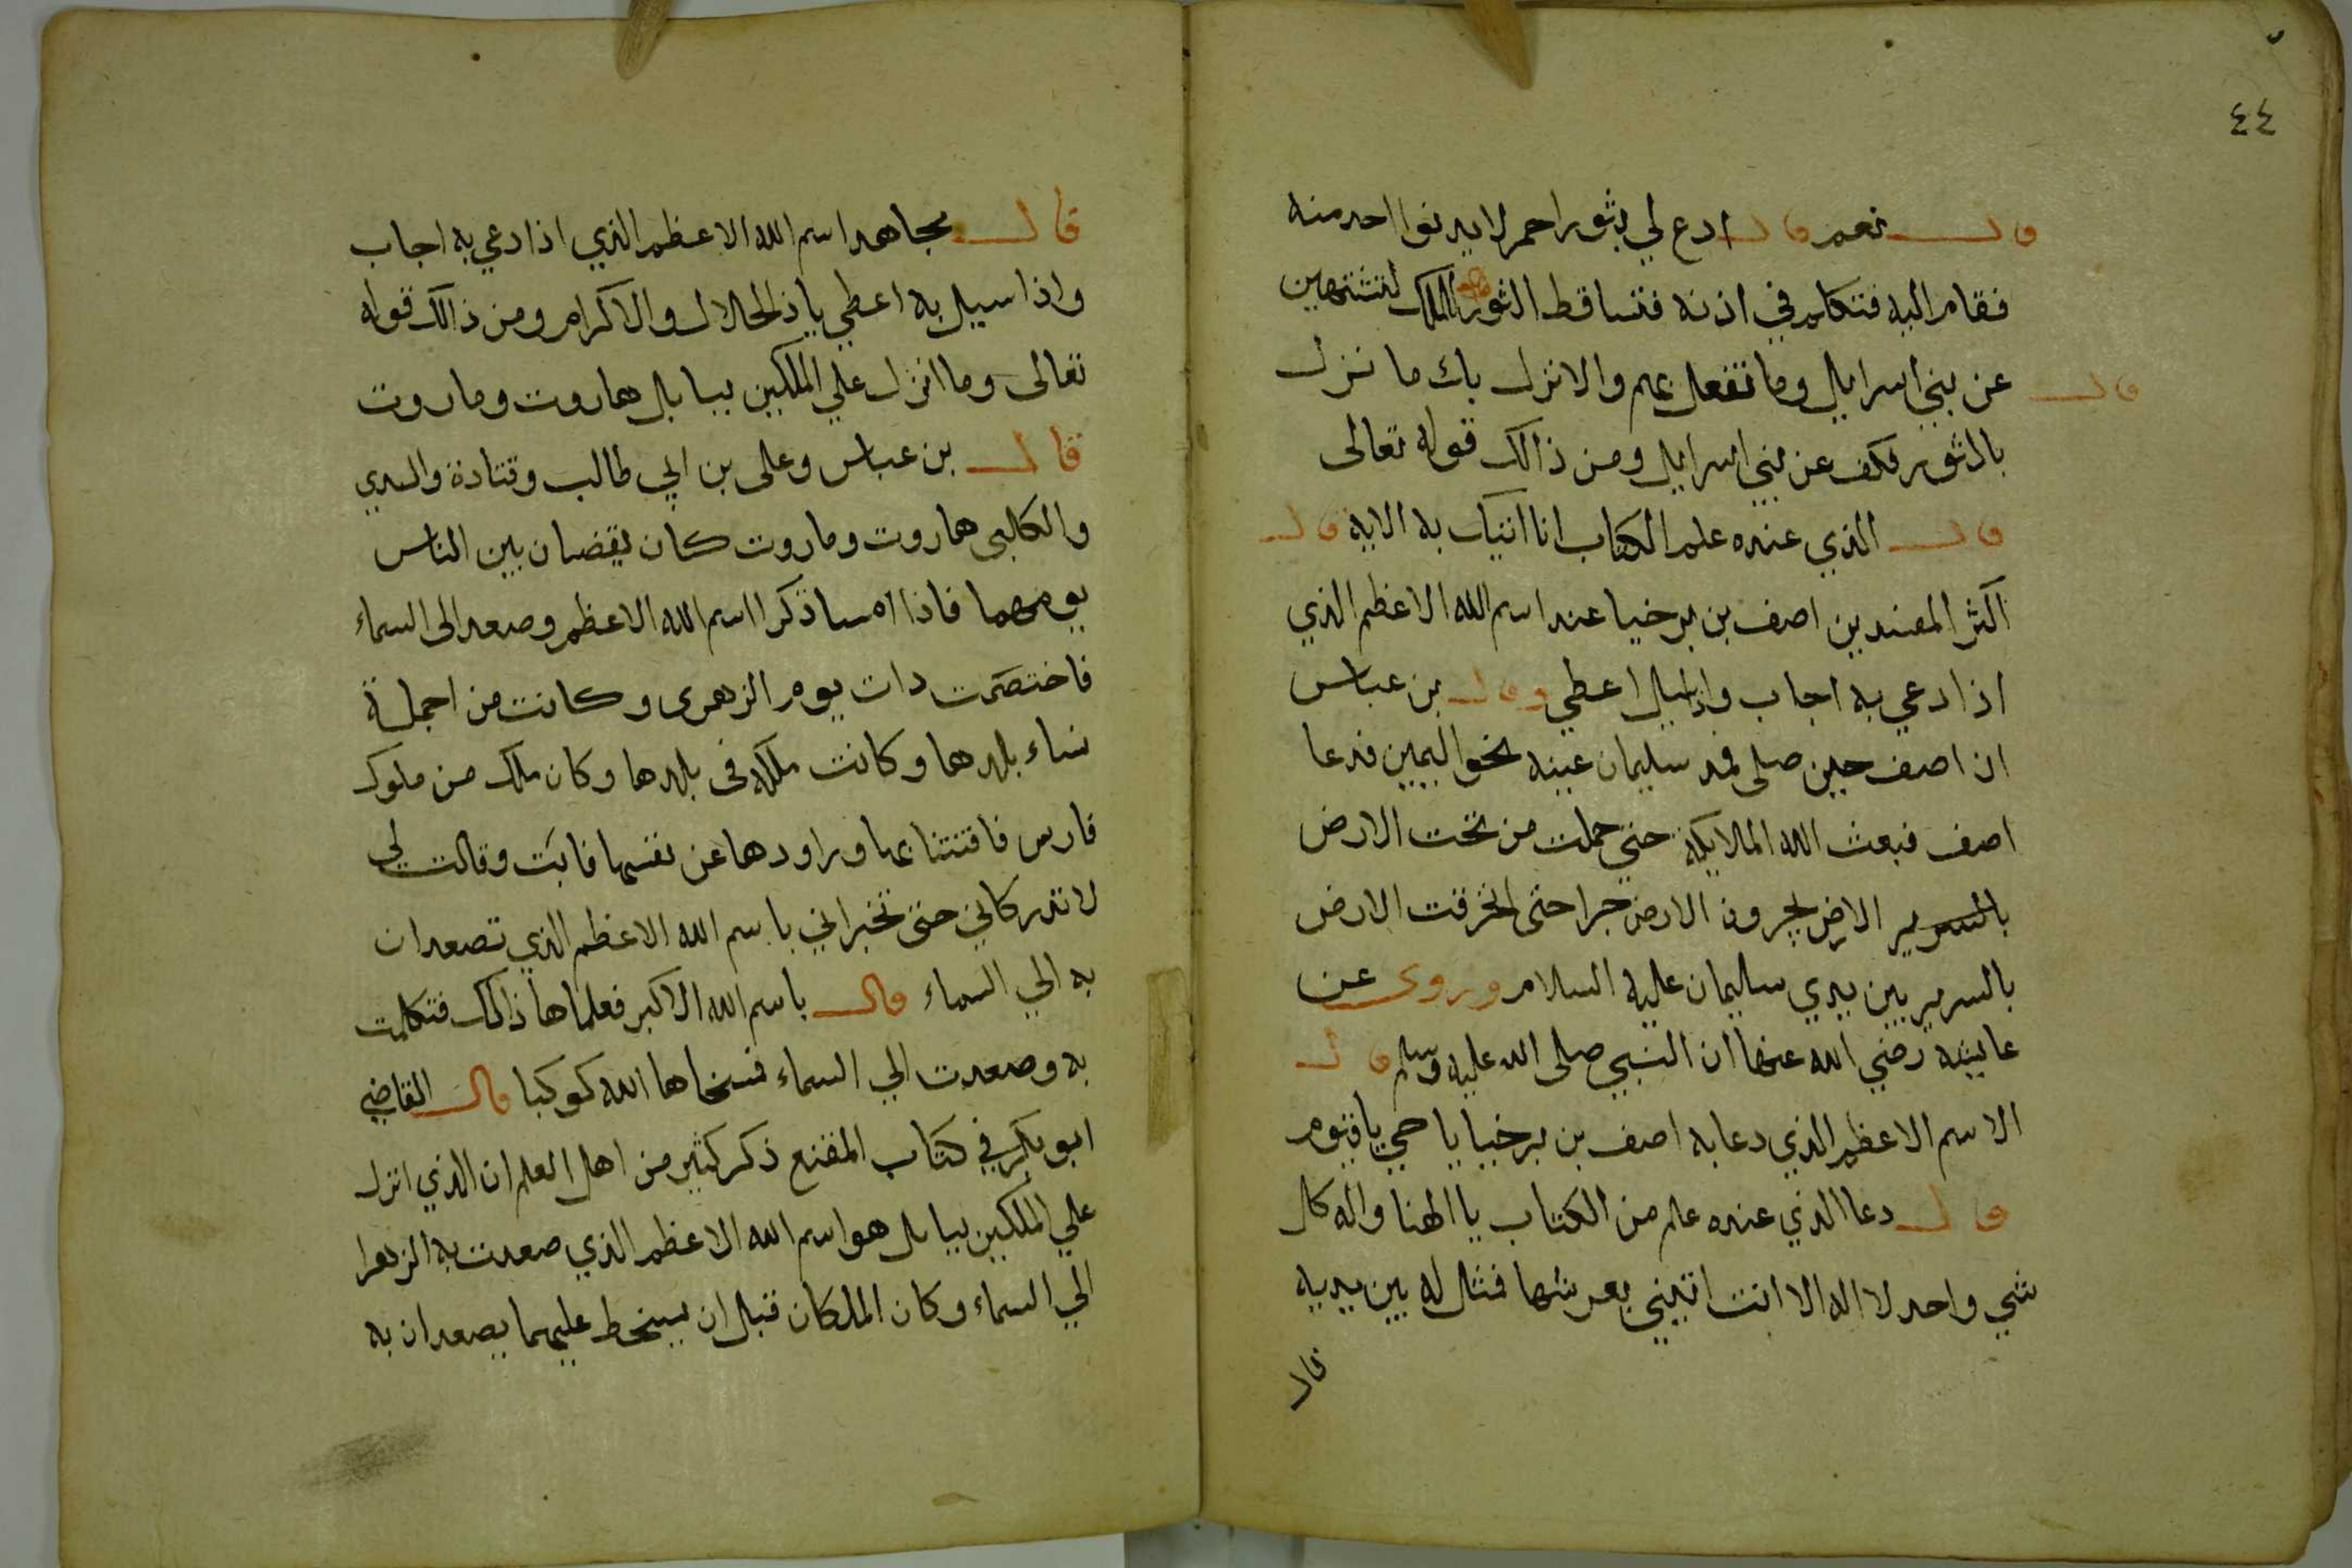 ٤٤
قال نعم قال ادع لي بثور احمر لا يدنوا احد منه
فقام اليه فتكلم في اذنه فتساقط الثور الملك لتنتهين
قال عن بني اسرايل وما تفعل بهم والا نزل بك ما نزل
بالثور فكف عن بني اسرايل ومن ذالك قوله تعالى
قال الذي عنده علم الكتاب انا اتيك به الايه قال
اكثر المفسدين اصف بن برخيا عند اسم الله الاعظم الذي
اذا دعي به اجاب واذا سيل اعطي وقال بن عباس
ان اصف حين صلى فمد سليمان عينه نحو اليمين فدعا
اصف فبعث الله الملايكة حتي حملت من تحت الارض
بالسرير الارض يجرون الارض جرا حتى انخرقت الارض
بالسرير بين يدي سليمان عليه السلام وروى عن
عايشه رضي الله عنها ان النبي صلى الله عليه وسلم قال
الاسم الاعظم الذي دعا به اصف بن برخيا يا حي يا قيوم
قال دعا الذي عنده علم من الكتاب يا الهنا واله كل
شي واحد لا اله الا انت اتيني بعرشها فمثل له بين يديه
قال
قال مجاهد اسم الله الاعظم الذي اذا دعي به اجاب
واذا سيل به اعطي يا ذالجلال والاكرام ومن ذالك قوله
تعالى وما انزل علي الملكين ببابل هاروت وماروت
قال بن عباس وعلى بن ابي طالب وقتادة والسدي
والكلبى هاروت وماروت كان يقضيان بين الناس
يومهما فاذا امسا ذكرا اسم الله الاعظم وصعد الى السماء
فاختصمت دات يوم الزهرى وكانت من اجملة
نساء بلدهما وكانت ملكه فى بلدها وكان ملك من ملوك
فارس فافتتنا بها وراودها عن نفسها فابت وقالت لي
لا تدركاني حتى تخبراني باسم الله الاعظم الذي تصعدان
به الي السماء قال باسم الله الاكبر فعلماها ذالك فتكلمت
به وصعدت الي السماء فمسخاها الله كوكبا قال القاضي
ابو بكر في كتاب المقنع ذكر كثير من اهل العلم ان الذي انزل
علي الملكين ببابل هو اسم الله الاعظم الذي صعدت به الزهرا
الي السماء وكان الملكان قبل ان يسخط عليهما يصعدان به